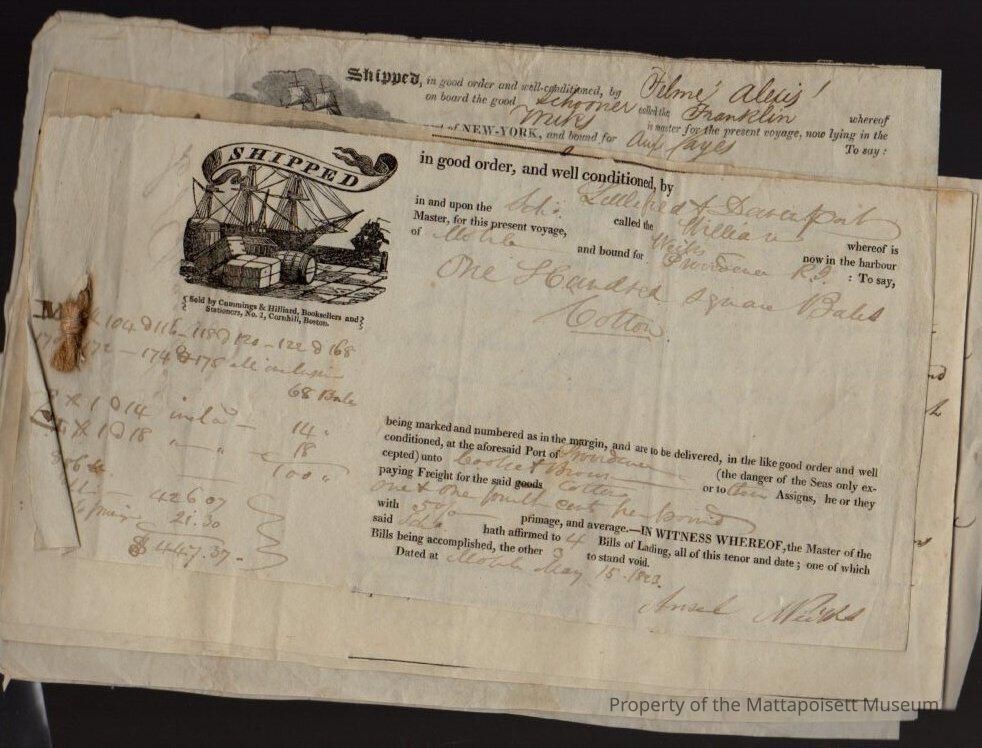 Shipped, in good order and well-conditioned, by Telmé Alexis!
on board the good Schooner called the Franklin whereof
Wicks is master for the present voyage, now lying in the
of NEW-YORK, and bound for Aux Cayes To say :
SHIPPED
in good order, and well conditioned, by
Littlefield & Davenport
in and upon the Schr. called the William whereof is
Master, for this present voyage, Weiks now in the harbour
of Mobile and bound for Providence R.I. : To say,
One Hundred Square Bales
Cotton
Sold by Cummings & Hilliard, Booksellers and
Stationers, No. 1, Cornhill, Boston.
104 @ 116 - 118 @ 120 - 122 @ 168
172 - 174 @ 178 all inclusive
68 Bales
1 @ 14 14
1 @ 18 18
100
426 07
21.30
$ 447.37
being marked and numbered as in the margin, and are to be delivered, in the like good order and well
conditioned, at the aforesaid Port of Providence (the danger of the Seas only ex-
cepted) unto Cooke & Brown or to their Assigns, he or they
paying Freight for the said goods Cotton
One & One fourth cents per pound
with 5% primage, and average.—IN WITNESS WHEREOF, the Master of the
said Schr hath affirmed to 4 Bills of Lading, all of this tenor and date ; one of which
Bills being accomplished, the other 3 to stand void.
Dated at Mobile May 15. 1823.
Ansel Weeks
Property of the Mattapoisett Museum